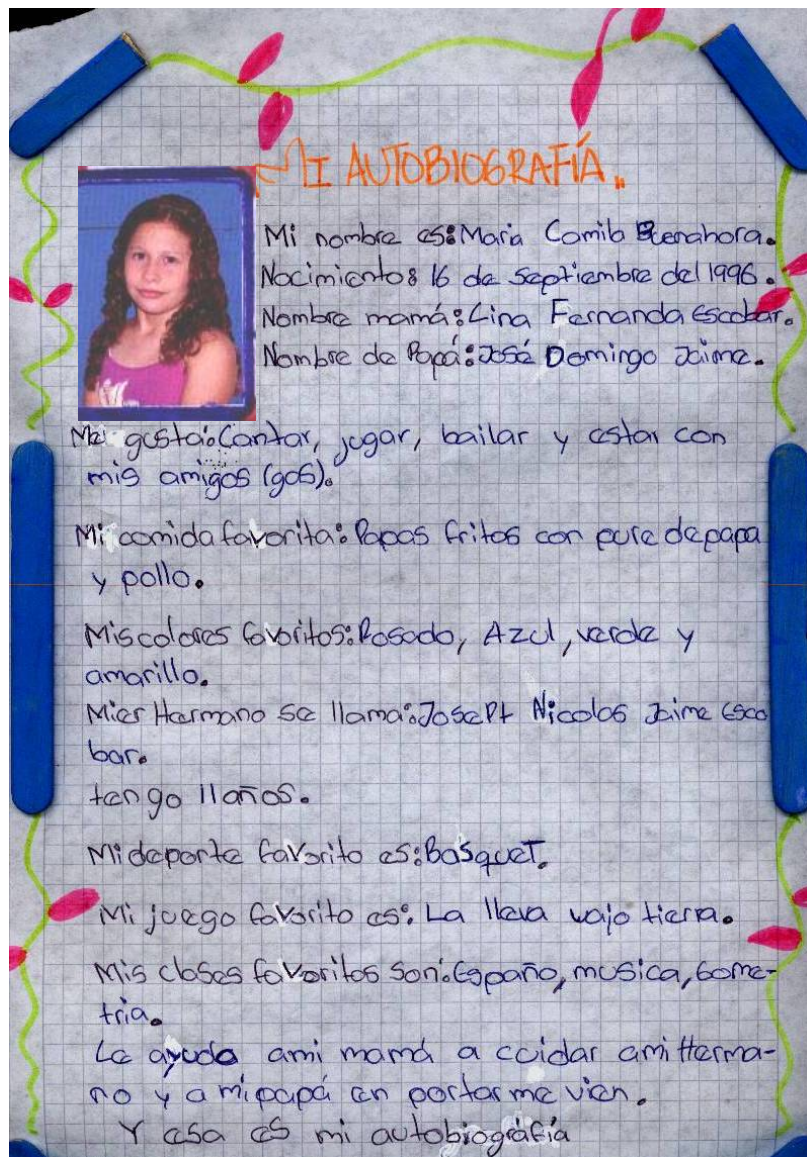 MI AUTOBIOGRAFÍA.
Mi nombre es: Maria Camila Benahora.
Nacimiento: 16 de septiembre del 1996.
Nombre mamá: Lina Fernanda Escobar.
Nombre de Papá: José Domingo Jaime.
Me gusta: Cantar, jugar, bailar y estar con
mis amigos (gas).
Mi comida favorita: Papas fritas con pure de papa
y pollo.
Mis colores favoritos: Rosado, Azul, verde y
amarillo.
Mi Hermano se llama: Josept Nicolas Jaime Esco
bar.
tengo 11 años.
Mi deporte favorito es: Basquet.
Mi juego favorito es: La lleva vajo tierra.
Mis clases favoritas son: Españo, musica, Gome-
tria.
Le ayudo ami mamá a cuidar ami Herma-
no y a mi papá en portar me vien.
Y esa es mi autobiografía